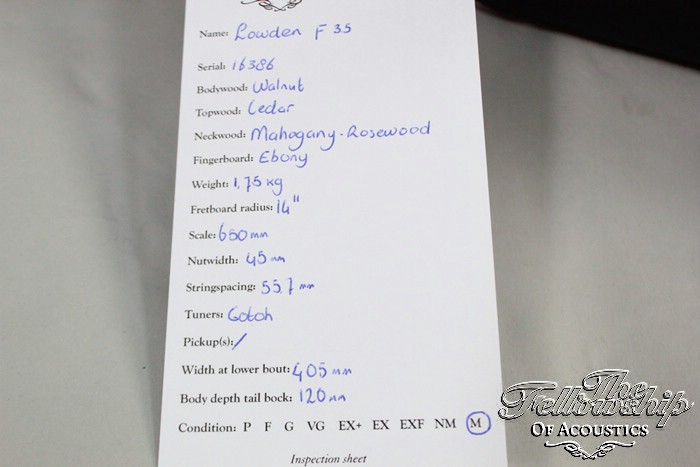 Name: Lowden F 35
Serial: 16386
Bodywood: Walnut
Topwood: Cedar
Neckwood: Mahogany - Rosewood
Fingerboard: Ebony
Weight: 1,75 kg
Fretboard radius: 14"
Scale: 650 mm
Nutwidth: 45 mm
Stringspacing: 55.7 mm
Tuners: Gotoh
Pickup(s): /
Width at lower bout: 405 mm
Body depth tail bock: 120 mm
Condition: P F G VG EX+ EX EXF NM M
Inspection sheet
The
Fellowship
Of Acoustics